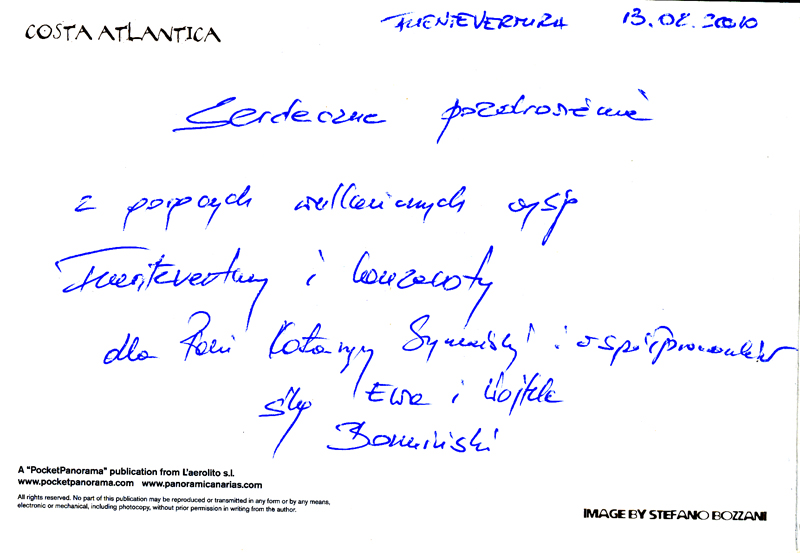 COSTA ATLANTICA
FUENTEVENTURA 13.08.2010
Serdeczne pozdrowienia
z gorących wulkanicznych wysp
Fuerteventury i Lanzaroty
dla Pani Katarzyny i współpracowników
ślą Ewa i Wojtek
A "PocketPanorama" publication from L'aerolito s.l.
www.pocketpanorama.com www.panoramicanarias.com
All rights reserved. No part of this publication may be reproduced or transmitted in any form or by any means,
electronic or mechanical, including photocopy, without prior permission in writing from the author.
IMAGE BY STEFANO BOZZANI